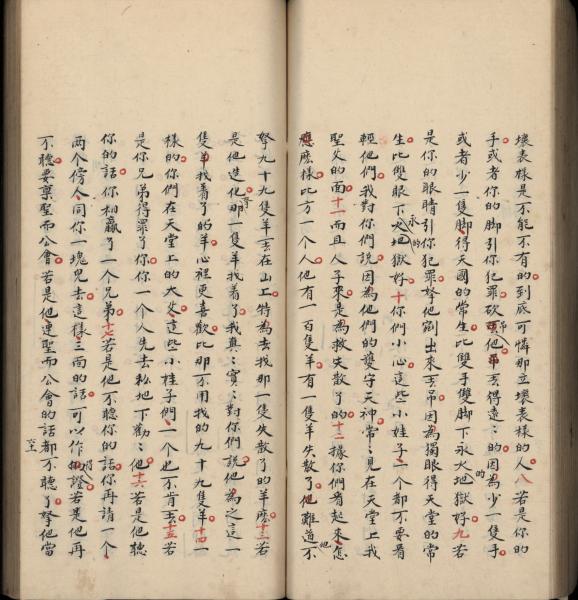 壞表樣是不能不有的到底可憐那立壞表樣的人八若是你的
手或者你的脚引你犯罪砍他弔去得遠〻的因為少一隻手
或者少一隻脚得天國的常生比雙手雙脚下永火地獄好九若
是你的眼睛引你犯罪拏他剜出來丟弔因為獨眼得天堂的常
生比雙眼下永火的地獄好十你們小心這些小娃子一个都不要看
輕他們我對你們說因為他們的護守天神常〻見在天堂上我
聖父的面十一而且人子來是為救失散了的十二據你們看起來怎
應麽樣比方一个人他有一百隻羊有一隻羊失散了他難道不
拏九十九隻羊丟在山上特為去找那一隻失散了的羊麽十三若
是他造化尋那一隻羊找着了我真〻實〻對你們說他為之這一
隻羊找着了的羊心裡更喜歡比那不用找的九十九隻羊十四一
樣的你們在天堂上的大父這些小娃子們一个也不肯丟十五若
是你兄弟得罪了你你一个人先去私地下勸〻他十六若是他聽
你的話你相贏了一个兄弟十七若是他不聽你的話你再請一个
两个傍人同你一塊兒去這樣三面的話可以作証若是他再
不聽要稟聖而公會若是他連聖而公會的話都不聽了拏他當